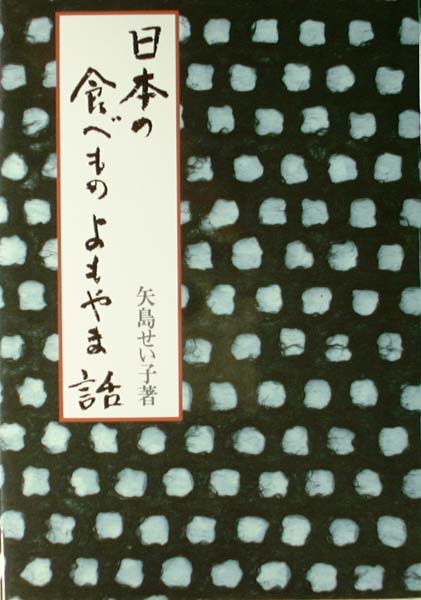 日本の
食べものよもやま話
矢島せい子著